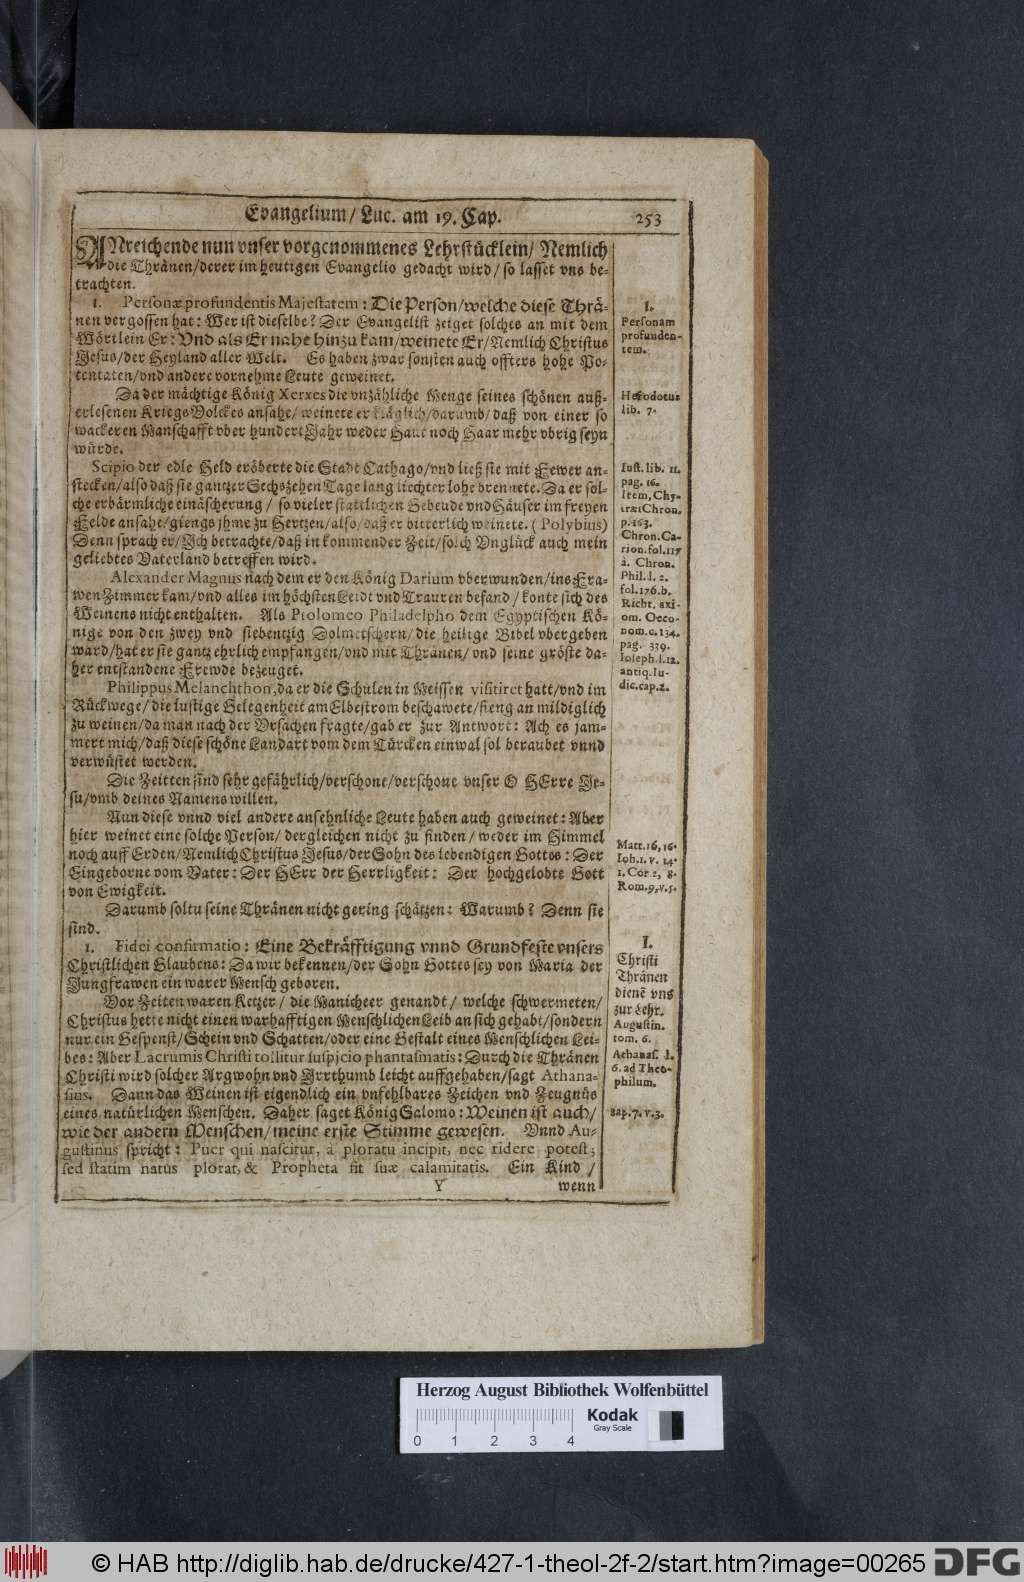 Evangelium / Luc. am 19. Cap. 253
ANreichende nun vnser vorgenommenes Lehrstücklein / Nemlich
die Thränen / derer im heutigen Evangelio gedacht wird / so lasset vns be-
trachten.
1. Personæ profundentis Majestatem: Die Person / welche diese Thrä-
nen vergossen hat: Wer ist dieselbe? Der Evangelist zeiget solches an mit dem
Wörtlein Er: Vnd als Er nahe hinzu kam / weinete Er / Nemlich Christus
Jesus / der Heyland aller Welt. Es haben zwar sonsten auch offters hohe Po-
tentaten / vnd andere vornehme Leute geweinet.
Da der mächtige König Xerxes die vnzähliche Menge seines schönen auß-
erlesenen Kriegs Volckes ansahe / weinete er kläglich / darumb / daß von einer so
wackeren Manschafft vber hundert Jahr weder Haut noch Haar mehr vbrig seyn
würde.
Scipio der edle Held eröberte die Stadt Cathago / vnd ließ sie mit Fewer an-
stecken / also daß sie gantzer Sechszehen Tage lang liechter lohe brennete. Da er sol-
che erbärmliche einäscherung / so vieler stattlichen Gebeude vnd Häuser im freyen
Felde ansahe / giengs jhme zu Hertzen / also / daß er bitterlich weinete. (Polybius)
Denn sprach er / Ich betrachte / daß in kommender Zeit / solch Vnglück auch mein
geliebtes Vaterland betreffen wird.
Alexander Magnus nach dem er den König Darium vberwunden / ins Fra-
wen Zimmer kam / vnd alles im höchsten Leidt vnd Trauren befand / konte sich des
Weinens nicht enthalten. Als Ptolomeo Philadelpho dem Egyptischen Kö-
nige von den zwey vnd siebentzig Dolmetschern / die heilige Bibel vbergeben
ward / hat er sie gantz ehrlich empfangen / vnd mit Thränen / vnd seine gröste da-
her entstandene Frewde bezeuget.
Philippus Melanchthon, da er die Schulen in Meissen visitiret hatt / vnd im
Rückwege / die lustige Gelegenheit am Elbestrom beschawete / fieng an mildiglich
zu weinen / da man nach der Vrsachen fragte / gab er zur Antwort: Ach es jam-
mert mich / daß diese schöne Landart vom dem Türcken einwal sol beraubet vnnd
verwüstet werden.
Die Zeitten sind sehr gefährlich / verschone / verschone vnser O HErre Je-
su / vmb deines Namens willen.
Nun diese vnnd viel andere ansehnliche Leute haben auch geweinet: Aber
hier weinet eine solche Person / dergleichen nicht zu finden / weder im Himmel
noch auff Erden / Nemlich Christus Jesus / der Sohn des lebendigen Gottes: Der
Eingeborne vom Vater: Der HErr der Herrligkeit: Der hochgelobte Gott
von Ewigkeit.
Darumb soltu seine Thränen nicht gering schätzen: Warumb? Denn sie
sind.
1. Fidei confirmatio: Eine Bekräfftigung vnnd Grundfeste vnsers
Christlichen Glaubens: Da wir bekennen / der Sohn Gottes sey von Maria der
Jungfrawen ein warer Mensch geboren.
Vor Zeiten waren Ketzer / die Manicheer genandt / welche schwermeten /
Christus hette nicht einen warhafftigen Menschlichen Leib an sich gehabt / sondern
nur ein Gespenst / Schein vnd Schatten / oder eine Gestalt eines Menschlichen Lei-
bes: Aber Lacrumis Christi tollitur suspicio phantasmatis: Durch die Thränen
Christi wird solcher Argwohn vnd Irrthumb leicht auffgehaben / sagt Athana-
sius. Dann das Weinen ist eigendlich ein vnfehlbares Zeichen vnd Zeugnüs
eines natürlichen Menschen. Daher saget König Salomo: Weinen ist auch /
wie der andern Menschen / meine erste Stimme gewesen. Vnnd Au-
gustinus spricht: Puer qui nascitur, à ploratu incipit, nec ridere potest;
sed statim natus plorat, & Propheta fit suæ calamitatis. Ein Kind /
Y wenn
I.
Personam
profunden-
tem.
Herodotus
lib. 7.
Iust. lib. 11.
pag. 16.
Item, Chy-
træi Chron.
p. 163.
Chron. Ca-
rion. fol. 117
à. Chron.
Phil. l. 2.
fol. 176. b.
Richt. axi-
om. Oeco-
nom. c. 134.
pag. 339.
Ioseph. l. 12.
antiq. Iu-
dic. cap. 2.
Matt. 16, 16.
Ioh. 1. v. 14.
1. Cor 2, 8.
Rom. 9, v. 5.
I.
Christi
Thränen
dienẽ vns
zur Lehr.
Augustin.
tom. 6.
Athanas. l.
6. ad Theo-
philum.
Sap. 7. v. 3.
Herzog August Bibliothek Wolfenbüttel
0 1 2 3 4
Kodak
Gray Scale
© HAB http://diglib.hab.de/drucke/427-1-theol-2f-2/start.htm?image=00265 DFG